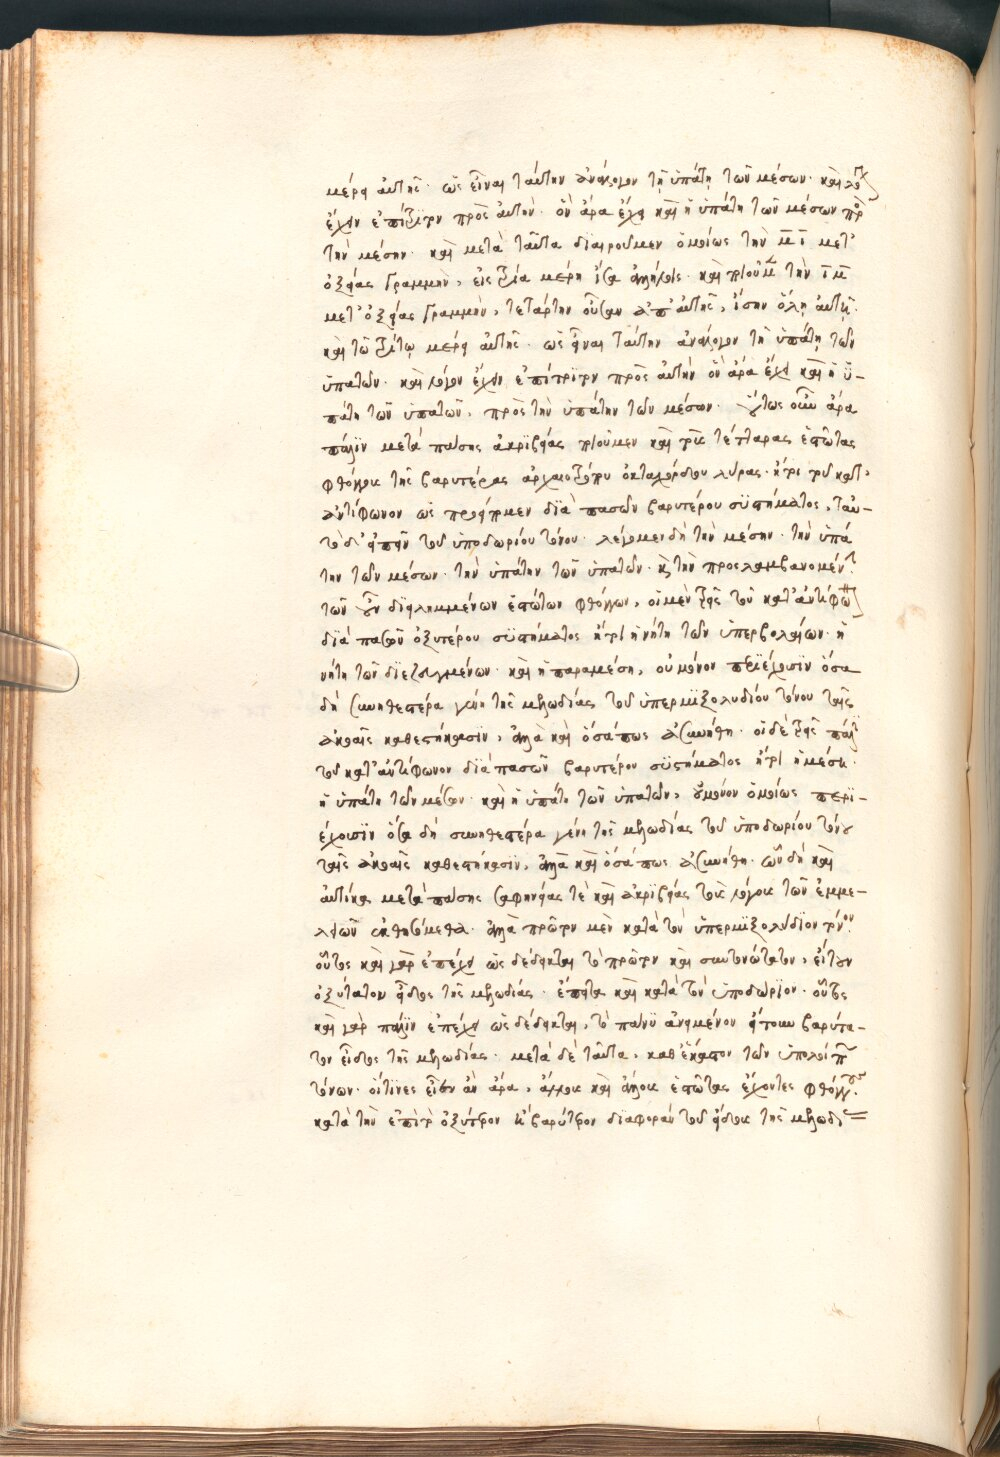 μέρει αὐτῆς· ὡς εἶναι ταύτην ἀνάλογον τῇ ὑπάτῃ τῶν μέσων· καὶ λόγον
ἔχειν ἐπίτριτον πρὸς αὐτὴν· ὃν ἄρα ἔχει καὶ ἡ ὑπάτη τῶν μέσων πρὸς
τὴν μέσην· καὶ μετὰ ταῦτα διαιροῦμεν ὁμοίως τὴν μ ι μετ'
ὀξείας γραμμὴν, εἰς τρία μέρη ἴσα ἀλλήλοις· καὶ ποιοῦμεν τὴν ι μ
μετ' ὀξείας γραμμὴν, τετάρτην οὖσαν ἀπ' αὐτῆς, ἴσην ὅλῃ αὐτῇ·
καὶ τῷ τρίτῳ μέρει αὐτῆς· ὡς εἶναι ταύτην ἀνάλογον τῇ ὑπάτῃ τῶν
ὑπατῶν· καὶ λόγον ἔχειν ἐπίτριτον πρὸς αὐτὴν ὃν ἄρα ἔχει καὶ ἡ ὑ-
πάτη τῶν ὑπατῶν, πρὸς τὴν ὑπάτην τῶν μέσων· οὕτως οὖν ἄρα
πάλιν μετὰ πάσης ἀκριβείας ποιοῦμεν καὶ τοὺς τέτταρας ἑστῶτας
φθόγγους τῆς βαρυτέρας ἀρχαιοτρόπου ὀκταχόρδου λύρας· ἤτοι τοῦ κατ'
ἀντίφωνον ὡς προείπομεν διὰ πασῶν βαρυτέρου συστήματος, ταυ-
τὸ δ' εἰπεῖν τοῦ ὑποδωρίου τόνου· λέγομεν δὴ τὴν μέσην· τὴν ὑπά
την τῶν μέσων· τὴν ὑπάτην τῶν ὑπατῶν· καὶ τὴν προσλαμβανομένην·
τῶν οὖν διειλημμένων ἑστώτων φθόγγων, οἱ μὲν τρεῖς τοῦ κατ' ἀντίφωνον
διὰ πασῶν ὀξυτέρου συστήματος ἤτοι ἡ νήτη τῶν ὑπερβολαίων· ἡ
νήτη τῶν διεζευγμένων· καὶ ἡ παραμέση, οὐ μόνον περιέχουσιν ὅσα
δὴ συνηθέστερα γένη τῆς μελωδίας τοῦ ὑπερμιξολυδίου τόνου τοῖς
ἀκοαῖς καθεστήκασιν, ἀλλὰ καὶ ὅσά πως ἀσυνήθη· οἱ δὲ τρεῖς πάλιν
τοῦ κατ' ἀντίφωνον διὰ πασῶν βαρυτέρου συστήματος ἤτοι ἡ μέση·
ἡ ὑπάτη τῶν μέσων· καὶ ἡ ὑπάτη τῶν ὑπατῶν, οὐ μόνον ὁμοίως περι-
έχουσιν ὅσα δὴ συνηθέστερα γένη τῆς μελωδίας τοῦ ὑποδωρίου τόνου
ταῖς ἀκοαῖς καθεστήκασιν, ἀλλὰ καὶ ὅσά πως ἀσυνήθη· ὧν δὴ καὶ
αὐτίκα μετὰ πάσης σαφηνείας τὲ καὶ ἀκριβείας τοὺς λόγους τῶν ἐμμε-
λειῶν ἐκθησόμεθα· ἀλλὰ πρῶτον μὲν κατὰ τὸν ὑπερμιξολύδιον τόνον·
οὗτος καὶ γὰρ ἐπέχει ὡς δέδεικται τὸ πρῶτον καὶ συντονώτατον, εἴτουν
ὀξύτατον εἶδος τῆς μελωδίας· ἔπειτα καὶ κατὰ τὸν ὑποδώριον· οὗτος
καὶ γὰρ πάλιν ἐπέχει ὡς δέδεικται, τὸ πάνυ ἀνειμένον ἤτοι βαρύτα-
τον εἶδος τῆς μελωδίας· μετὰ δὲ ταῦτα, καθ' ἕκαστον τῶν ὑπολοίπων
τόνων· οἵτινες εἶεν ἂν ἄρα, ἄλλους καὶ ἄλλους ἑστῶτας ἔχοντες φθόγγους·
κατὰ τὴν ἐπὶ τὸ ὀξύτερον καὶ βαρύτερον διαφορὰν τοῦ εἴδους τῆς μελωδί=